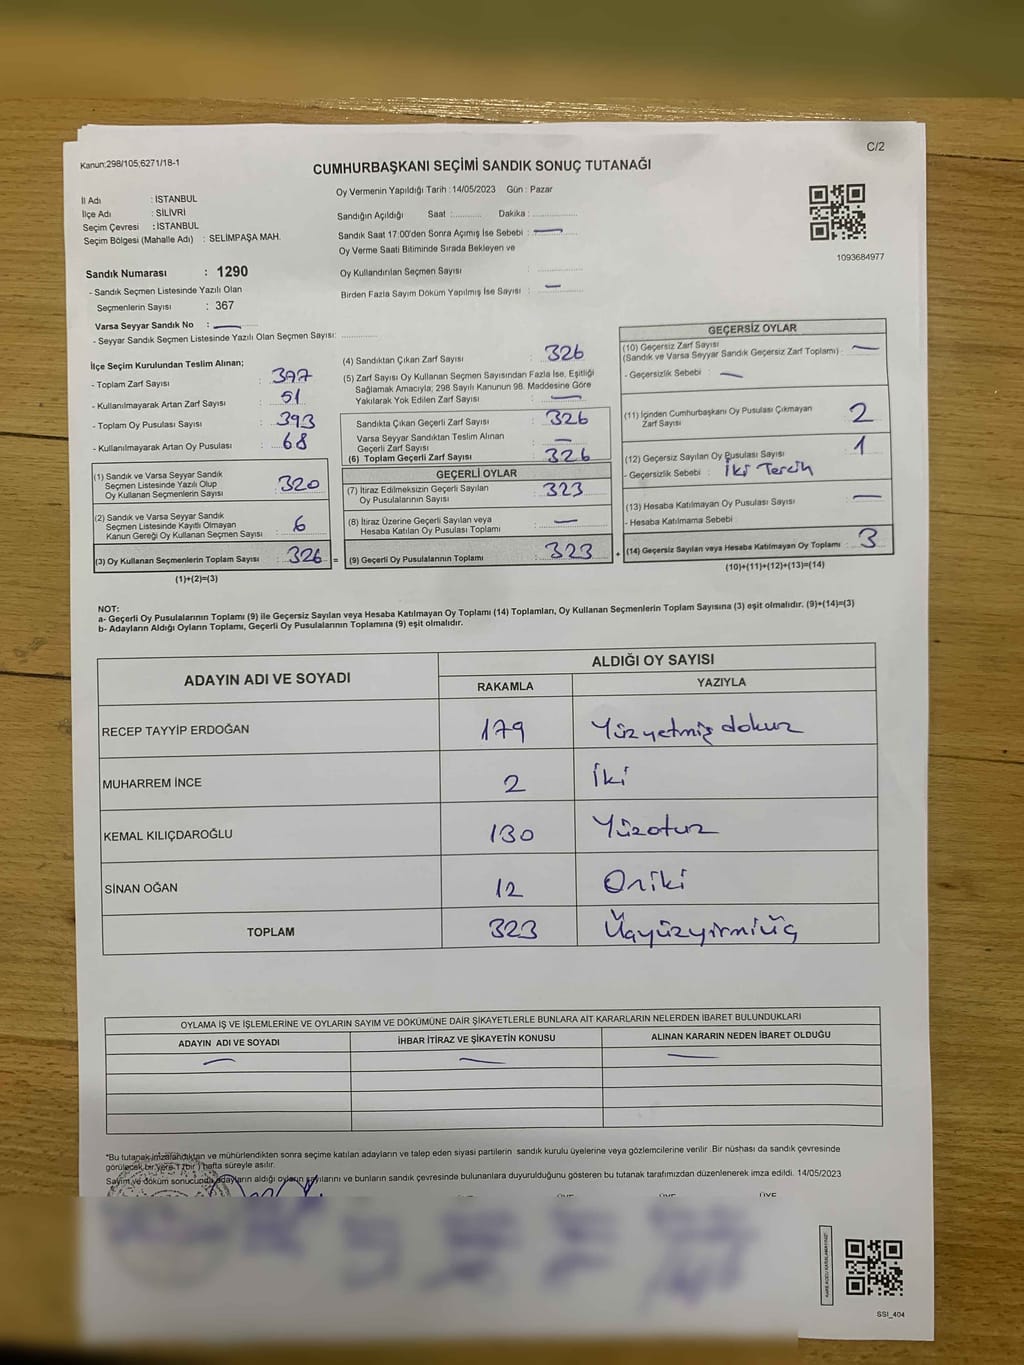 C/2
Kanun:298/105,6271/18-1
CUMHURBAŞKANI SEÇİMİ SANDIK SONUÇ TUTANAĞI
Oy Vermenin Yapıldığı Tarih : 14/05/2023 Gün : Pazar
İl Adı : İSTANBUL
İlçe Adı : SİLİVRİ
Seçim Çevresi : İSTANBUL
Seçim Bölgesi (Mahalle Adı) : SELİMPAŞA MAH.
Sandığın Açıldığı Saat :........... Dakika :................
Sandık Saat 17:00'den Sonra Açımış İse Sebebi : —
Oy Verme Saati Bitiminde Sırada Bekleyen ve
Oy Kullandırılan Seçmen Sayısı : ................
Birden Fazla Sayım Döküm Yapılmış İse Sayısı : —
1093684977
Sandık Numarası : 1290
- Sandık Seçmen Listesinde Yazılı Olan
Seçmenlerin Sayısı : 367
Varsa Seyyar Sandık No : —
- Seyyar Sandık Seçmen Listesinde Yazılı Olan Seçmen Sayısı: .............
İlçe Seçim Kurulundan Teslim Alınan;
- Toplam Zarf Sayısı : 377
- Kullanılmayarak Artan Zarf Sayısı : 51
- Toplam Oy Pusulası Sayısı : 393
- Kullanılmayarak Artan Oy Pusulası : 68
(1) Sandık ve Varsa Seyyar Sandık
Seçmen Listesinde Yazılı Olup
Oy Kullanan Seçmenlerin Sayısı : 320
(2) Sandık ve Varsa Seyyar Sandık
Seçmen Listesinde Kayıtlı Olmayan
Kanun Gereği Oy Kullanan Seçmen Sayısı : 6
(3) Oy Kullanan Seçmenlerin Toplam Sayısı : 326 =
(1)+(2)=(3)
(4) Sandıktan Çıkan Zarf Sayısı : 326
(5) Zarf Sayısı Oy Kullanan Seçmen Sayısından Fazla İse, Eşitliği
Sağlamak Amacıyla; 298 Sayılı Kanunun 98. Maddesine Göre
Yakılarak Yok Edilen Zarf Sayısı : —
Sandıkta Çıkan Geçerli Zarf Sayısı : 326
Varsa Seyyar Sandıktan Teslim Alınan
Geçerli Zarf Sayısı : —
(6) Toplam Geçerli Zarf Sayısı : 326
GEÇERLİ OYLAR
(7) İtiraz Edilmeksizin Geçerli Sayılan
Oy Pusulalarının Sayısı : 323
(8) İtiraz Üzerine Geçerli Sayılan veya
Hesaba Katılan Oy Pusulası Toplamı : —
(9) Geçerli Oy Pusulalarının Toplamı : 323 +
GEÇERSİZ OYLAR
(10) Geçersiz Zarf Sayısı
(Sandık ve Varsa Seyyar Sandık Geçersiz Zarf Toplamı) : —
- Geçersizlik Sebebi : —
(11) İçinden Cumhurbaşkanı Oy Pusulası Çıkmayan
Zarf Sayısı : 2
(12) Geçersiz Sayılan Oy Pusulası Sayısı : 1
- Geçersizlik Sebebi : İki Tercih
(13) Hesaba Katılmayan Oy Pusulası Sayısı : —
- Hesaba Katılmama Sebebi
(14) Geçersiz Sayılan veya Hesaba Katılmayan Oy Toplamı : 3
(10)+(11)+(12)+(13)=(14)
NOT:
a- Geçerli Oy Pusulalarının Toplamı (9) ile Geçersiz Sayılan veya Hesaba Katılmayan Oy Toplamı (14) Toplamları, Oy Kullanan Seçmenlerin Toplam Sayısına (3) eşit olmalıdır. (9)+(14)=(3)
b- Adayların Aldığı Oyların Toplamı, Geçerli Oy Pusulalarının Toplamına (9) eşit olmalıdır.
ADAYIN ADI VE SOYADI
ALDIĞI OY SAYISI
RAKAMLA YAZIYLA
RECEP TAYYİP ERDOĞAN 179 Yüzyetmiş dokuz
MUHARREM İNCE 2 İki
KEMAL KILIÇDAROĞLU 130 Yüzotuz
SİNAN OĞAN 12 Oniki
TOPLAM 323 Üçyüzyirmiüç
OYLAMA İŞ VE İŞLEMLERİNE VE OYLARIN SAYIM VE DÖKÜMÜNE DAİR ŞİKAYETLERLE BUNLARA AİT KARARLARIN NELERDEN İBARET BULUNDUKLARI
ADAYIN ADI VE SOYADI İHBAR İTİRAZ VE ŞİKAYETİN KONUSU ALINAN KARARIN NEDEN İBARET OLDUĞU
— — —
*Bu tutanak imzalandıktan ve mühürlendikten sonra seçime katılan adayların ve talep eden siyasi partilerin sandık kurulu üyelerine veya gözlemcilerine verilir. Bir nüshası da sandık çevresinde
görülecek bir yere 1 (bir) hafta süreyle asılır.
Sayım ve döküm sonucunda adayların aldığı oyların sayılarını ve bunların sandık çevresinde bulunanlara duyurulduğunu gösteren bu tutanak tarafımızdan düzenlenerek imza edildi. 14/05/2023
ÜYE ÜYE ÜYE
SSI_404